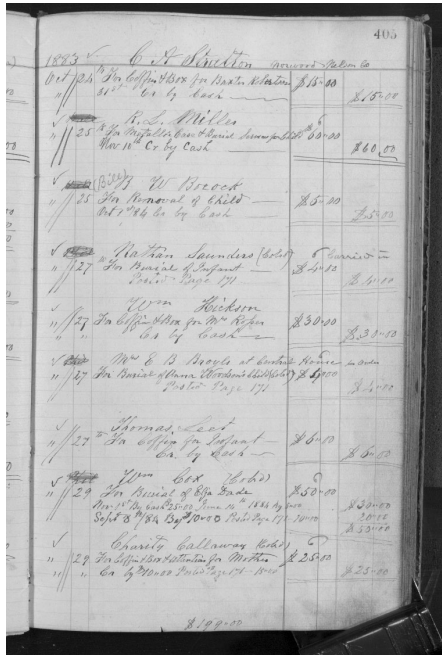 405
1883 C A Stratton Norwood Nelson Co
Oct 24 To Coffin & Box for Baxter $15-00
31st Cr by Cash $15-00
R. L. Miller
25 To Metallic Case & Burial $60-00
Nov 10th Cr by Cash $60.00
(Bill) W Bocock
25 For Removal of Child $5-00
Oct 1st 84 Cr by Cash $5-00
Nathan Saunders (Cold) Carried
27 For Burial of Infant $4-00
Posted Page 171 $4-00
Wm Hickson
27 For Coffin & Box for Mrs $30-00
Cr by Cash $30-00
Mrs E B Broyle at Central House
27 For Burial of Child (Cold)
Posted Page 171 $4-00
Thomas
27 To Coffin for Infant $6-00
Cr. by Cash $6-00
Wm Cox (Cold)
29 For Burial of Effa Dade $50-00
Nov 1st By Cash 25-00 June 14th 1884 By $30-00
Sept 8th /84 By 10-00 Posted Page 171-10-00 20-00
$50-00
Charity Callaway (Cold)
29 For Coffin & Box & attention for Mother $25-00
Cr by 10-00 Posted Page 171-15-00 $25-00
$199-00